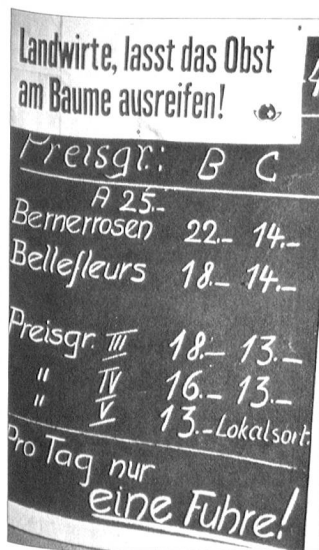 Landwirte, lasst das Obst
am Baume ausreifen!
Preisgr: B C
A 25.-
Bernerrosen 22.- 14.-
Bellefleurs 18.- 14.-
Preisgr. III 18.- 13.-
" IV 16.- 13.-
" V 13.- Lokalsort.
Pro Tag nur
eine Fuhre!